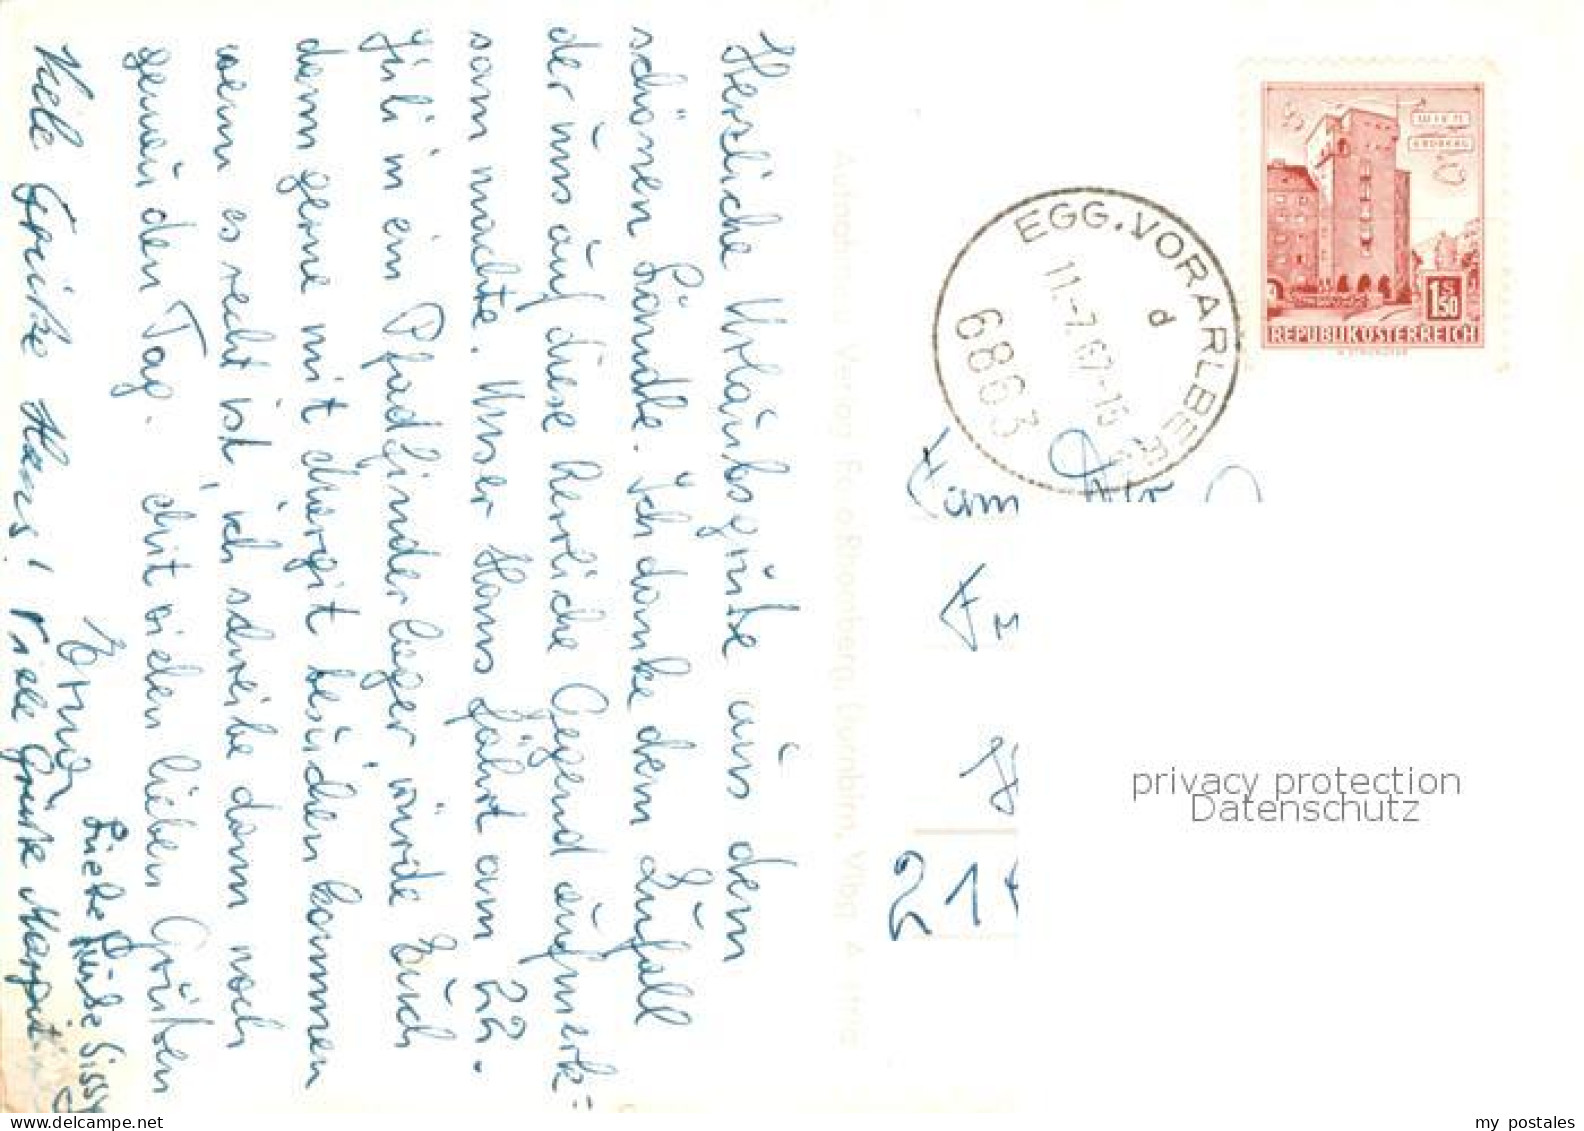 Herzliche Urlaubsgrüße aus dem
schönen Ländle. Ich danke dem Zufall
der uns auf diese herrliche Gegend aufmerk=
sam machte. Unser Hans fährt am 22.
Juli in ein Pfadfinderlager, würde Euch
dann gerne mit Margit besuchen kommen
wenn es recht ist, ich schreibe dann noch
genau den Tag. Mit vielen lieben Grüßen
Erna
Viele Grüße Hans! Viele Grüße Margit
Liebe Grüße Sissy
Aufnahme u. Verlag Rhomberg, Dornbirn, Vlbg
EGG, VORARLBERG
d
11.-7.67-16
6863
WIEN
ERDBERG
1S50
REPUBLIK ÖSTERREICH
Fam
privacy protection
Datenschutz
my postales